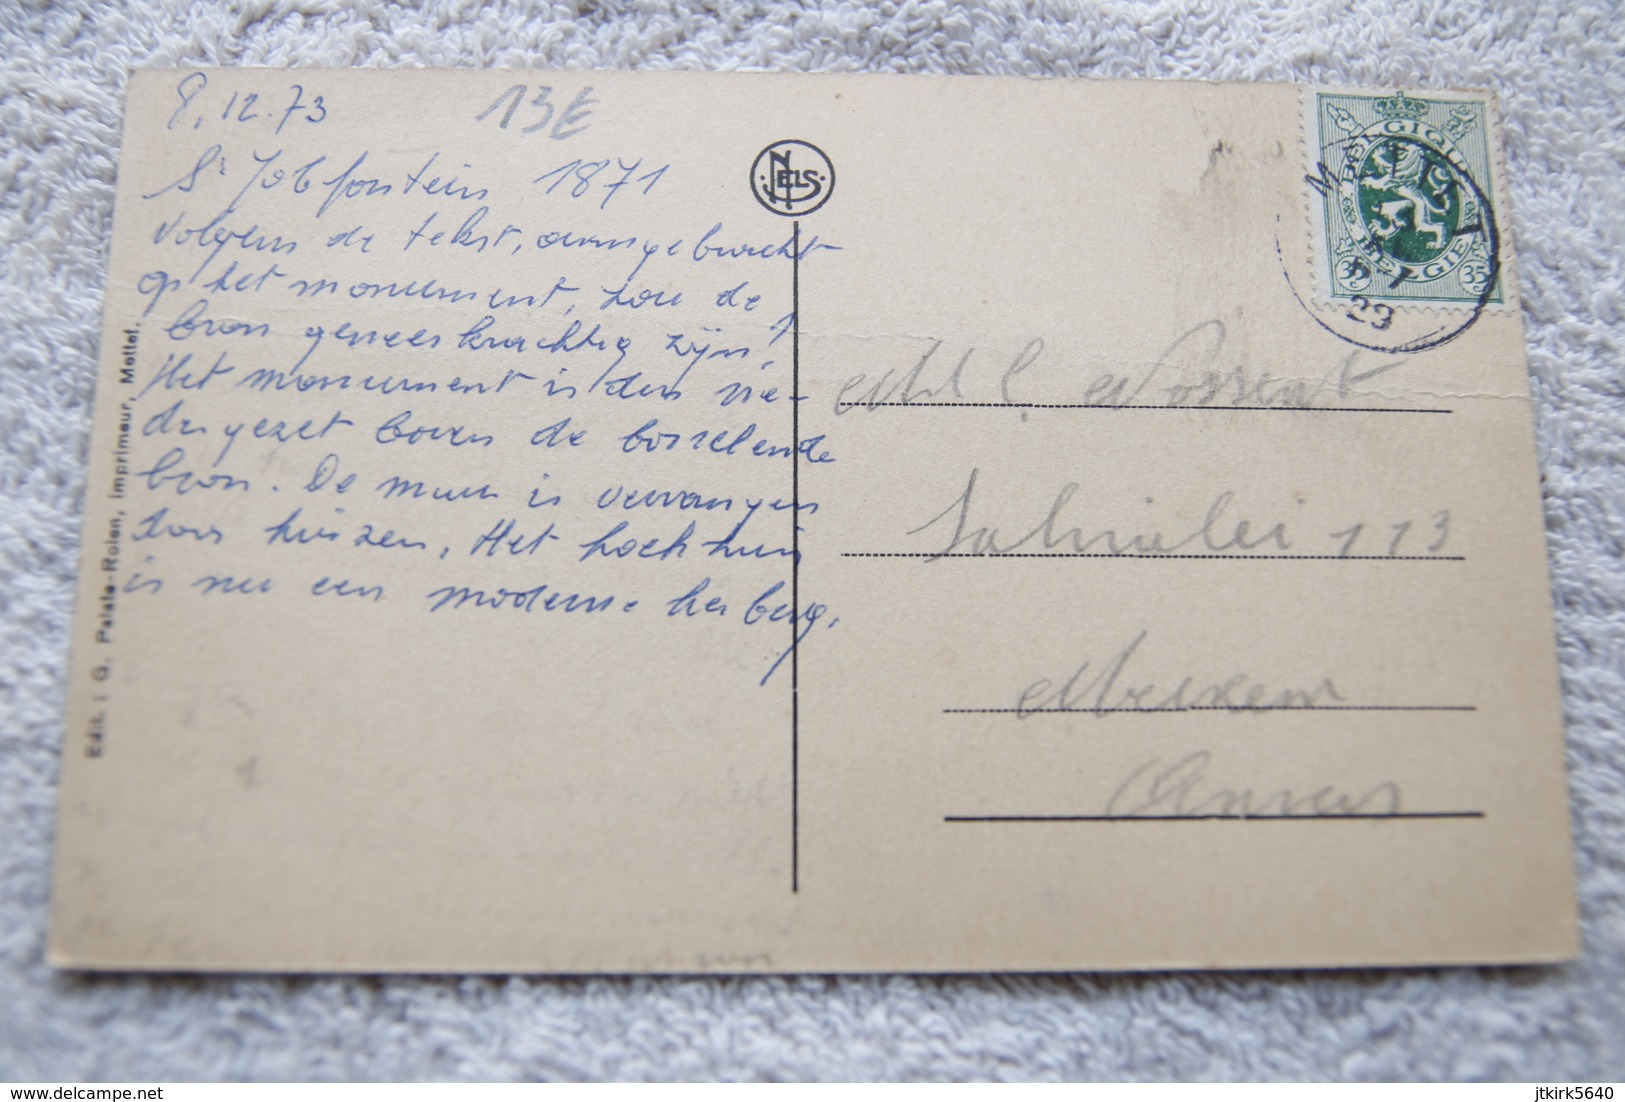 8.12.73
13E
St Jobfontein 1871
volgens de tekst, aangebracht
op het monument, zou de
bron geneeskrachtig zijn!
Het monument is dus nie-
dergezet boven de borrelende
bron. De muur is vervangen
door huizen, Het hoekhuis
is nu een moderne herberg.
Edit. : G. Palate-Rolen, imprimeur, Mettet.
NELS
BELGIQUE
BELGIE
35 35
METTET
29
Salvialei 113
Merxem
Anvers
www.delcampe.net
jtkirk5640